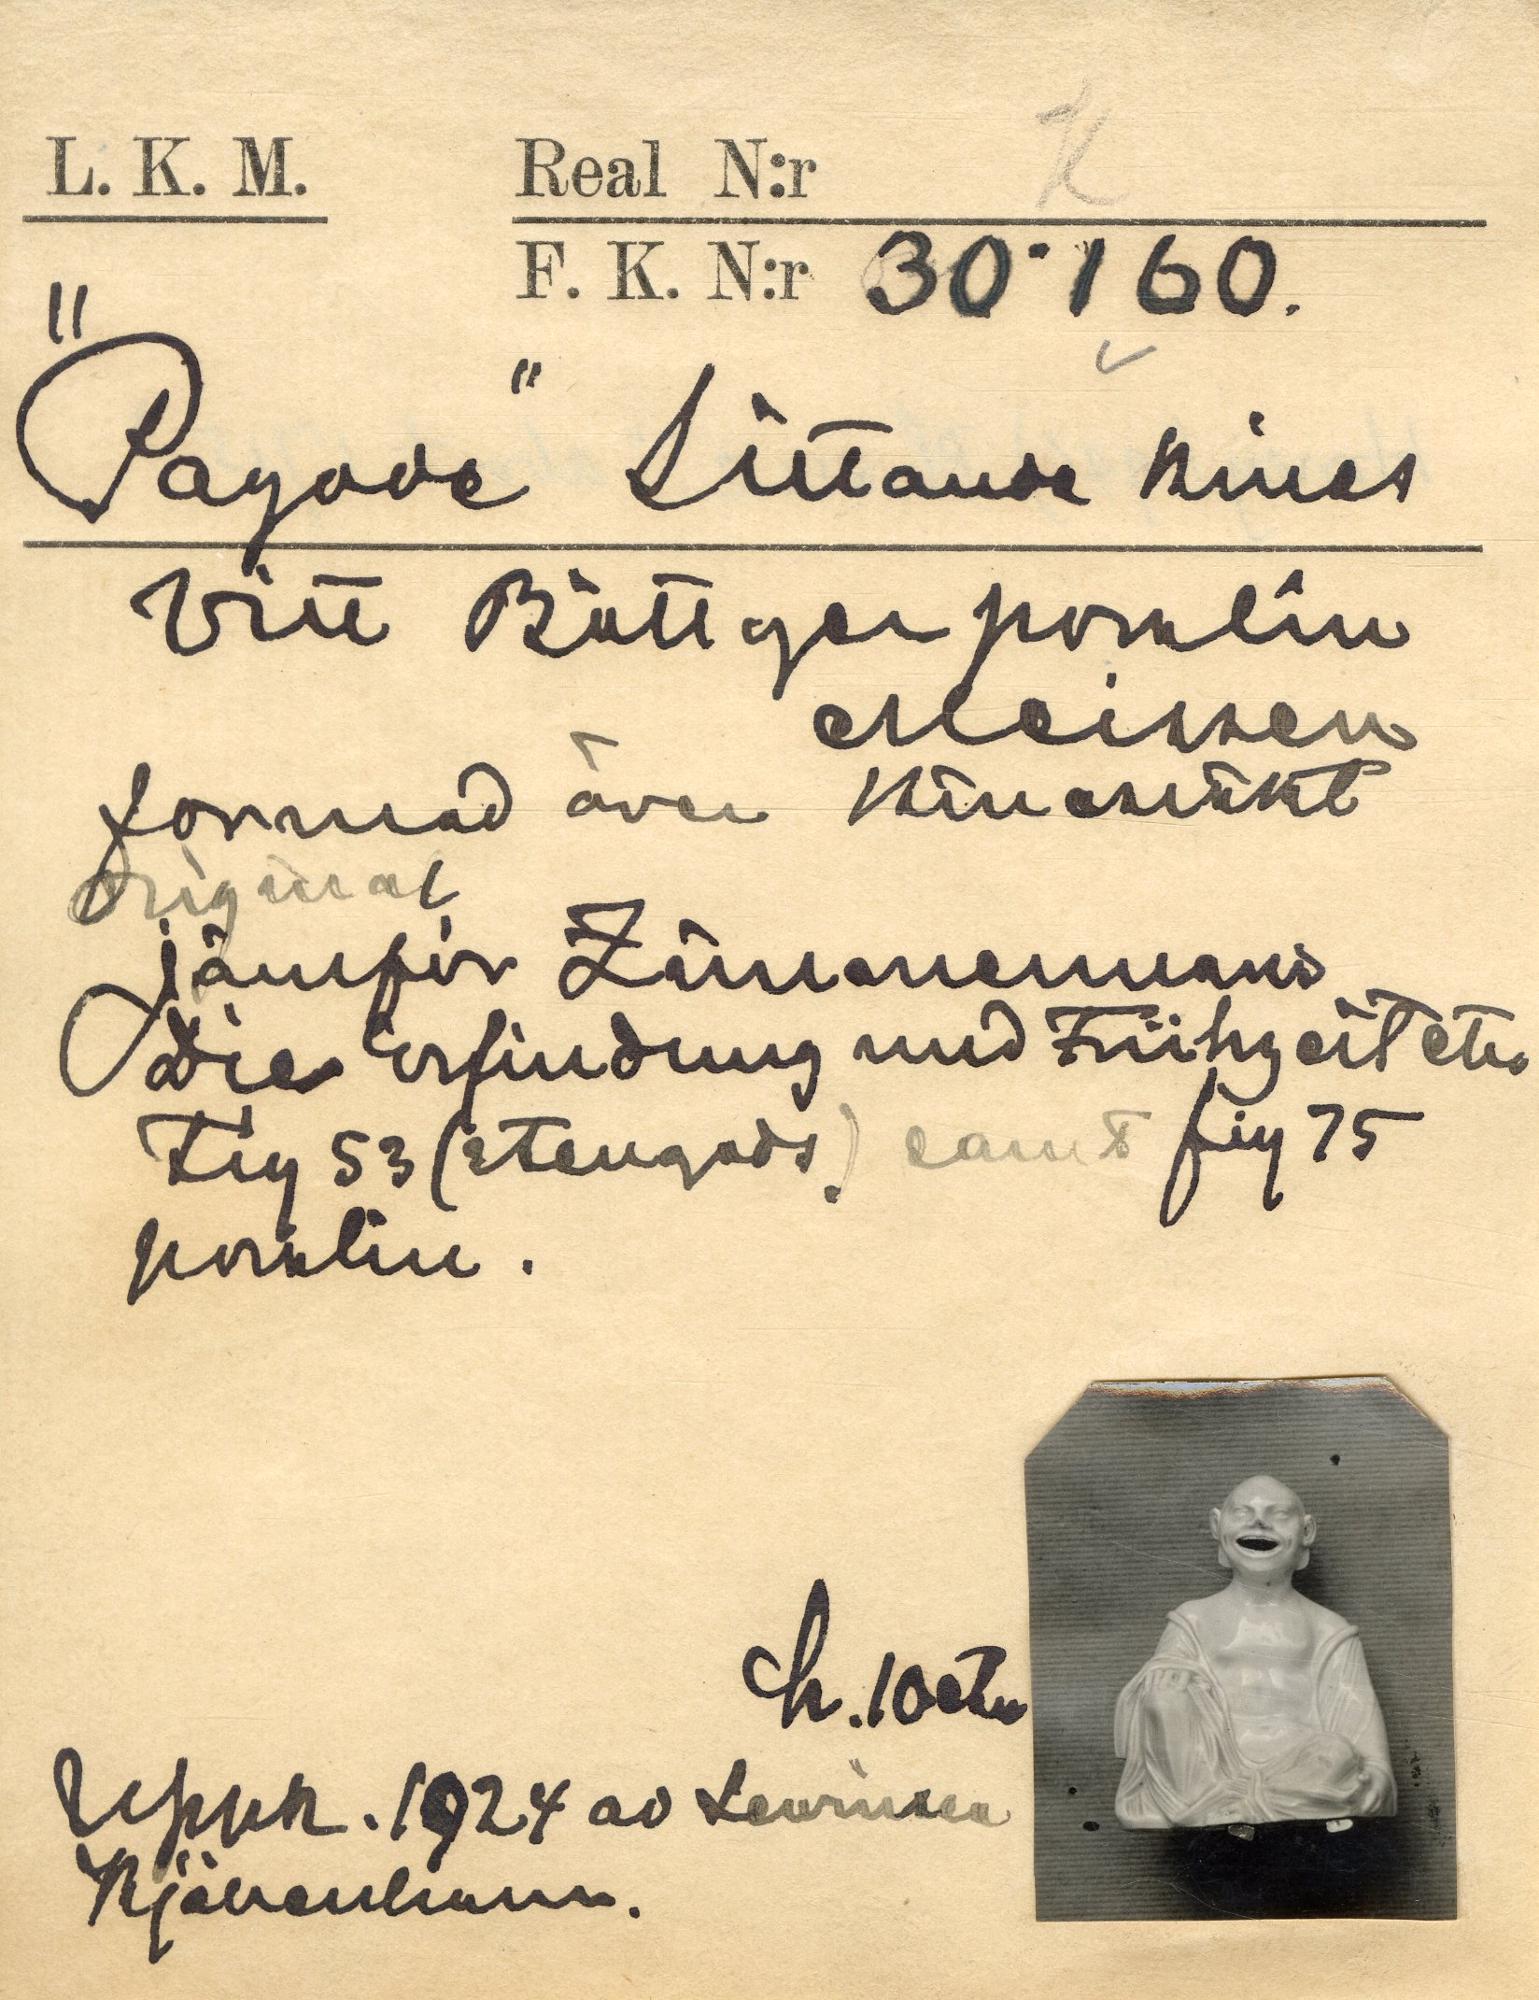 L. K. M. Real N:r K
F. K. N:r 30·160.
"Pagode" Sittande kines
Vitt Böttger porslin
Meissen
formad över kinesiskt
original
jämför Zimmermans
Die Erfindung und Frühzeit etc
Fig 53 (stengods) samt fig 75
porslin.
h. 10 ctm
Uppk. 1924 av Lewinsen
Kjöbenhavn.